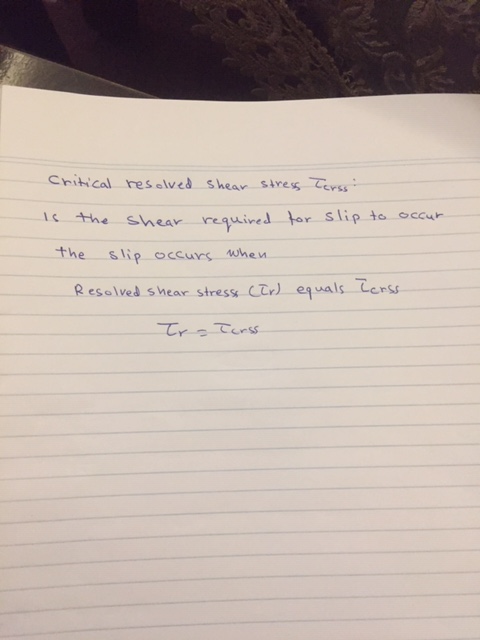 Critical resolved shear stress τcrss:
Is the shear required for slip to occur
the slip occurs when
Resolved shear stress (τr) equals τcrss
τr = τcrss